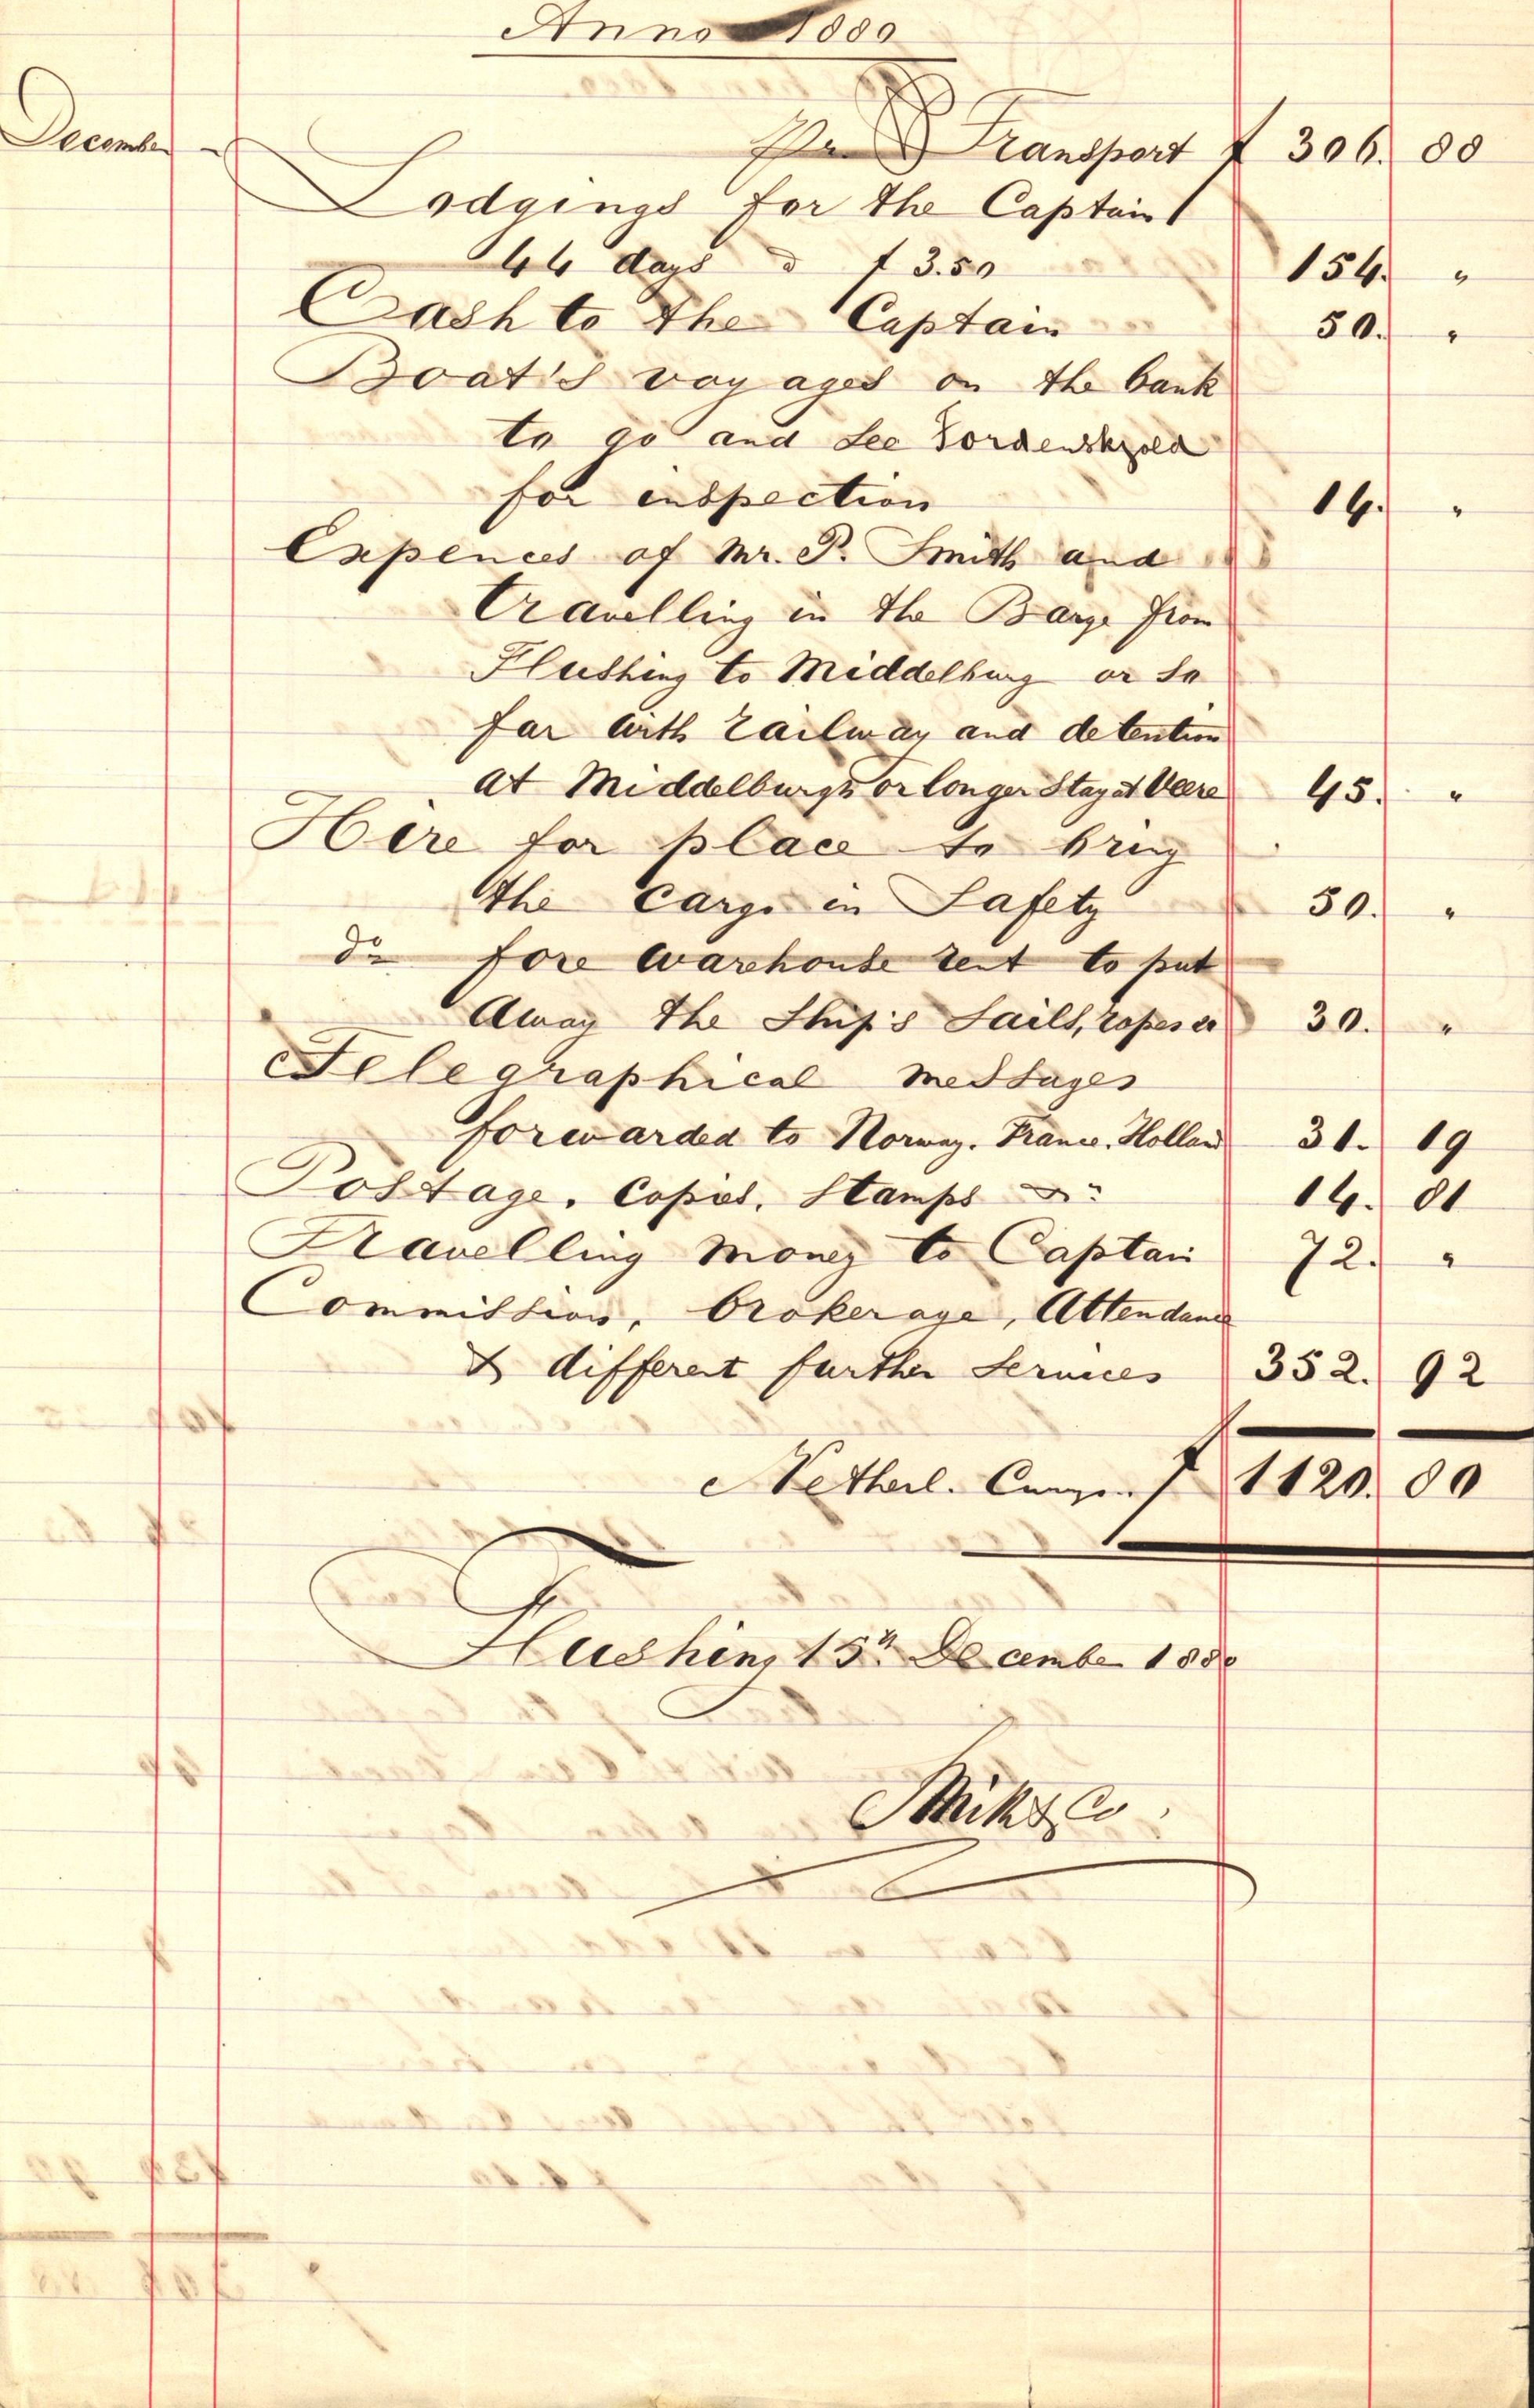 Anno 1880
December Pr. Transport f 306. 88
Lodgings for the Captain
44 days à f 3.50 154. "
Cash to the Captain 50. "
Boat's voyages on the bank
to go and see Tordenskjold
for inspection 14. "
Expences of Mr. P. Smith and
travelling in the Barge from
Flushing to Middelburg or so
far with railway and detention
at Middelburgs or longer Stay at Veere 45. "
Hire for place to bring
the cargo in Safety 50. "
do fore warehouse rent to put
away the Ship's Sails, ropes &c 30. "
Telegraphical messages
forwarded to Norway. France. Holland 31. 19
Postage. Copies. Stamps &c 14. 81
Travelling money to Captain 72. "
Commission, brokerage, Attendance
& different further Services 352. 92
Netherl. Curr. f 1120. 80
Flushing 15th December 1880
Smith & Co.